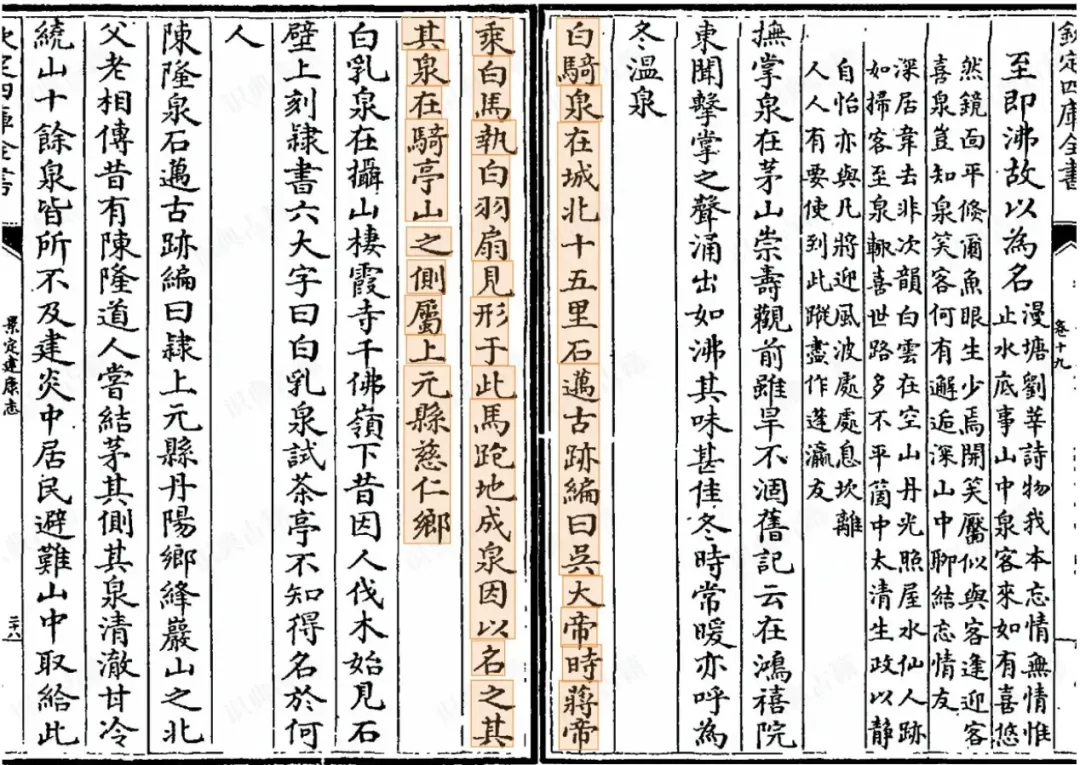 欽定四庫全書
卷十九
至即沸故以為名漫塘劉莘詩物我本忘情無情惟
止水底事山中泉客來如有喜悠
然鏡面平倐爾魚眼生少焉開笑靨似與客逢迎客
喜泉豈知泉笑客何有邂逅深山中聊結忘情友
深居韋去非次韻白雲在空山丹光照屋水仙人跡
如掃客至泉輒喜世路多不平箇中太清生政以靜
自怡亦與凡將迎風波處處息坎離
人人有要使到此蹤盡作蓬瀛友
撫掌泉在茅山崇壽觀前雖旱不涸舊記云在鴻禧院
東聞擊掌之聲涌出如沸其味甚佳冬時常暖亦呼為
冬温泉
白騎泉在城北十五里石邁古跡編曰吳大帝時蔣帝
乘白馬執白羽扇見形于此馬跑地成泉因以名之其
其泉在騎亭山之側屬上元縣慈仁鄉
白乳泉在攝山棲霞寺千佛嶺下昔因人伐木始見石
壁上刻隷書六大字曰白乳泉試茶亭不知得名於何
人
陳隆泉石邁古跡編曰隷上元縣丹陽鄉絳巖山之北
父老相傳昔有陳隆道人嘗結茅其側其泉清澈甘冷
繞山十餘泉皆所不及建炎中居民避難山中取給此
欽定四庫全書
景定建康志
二八